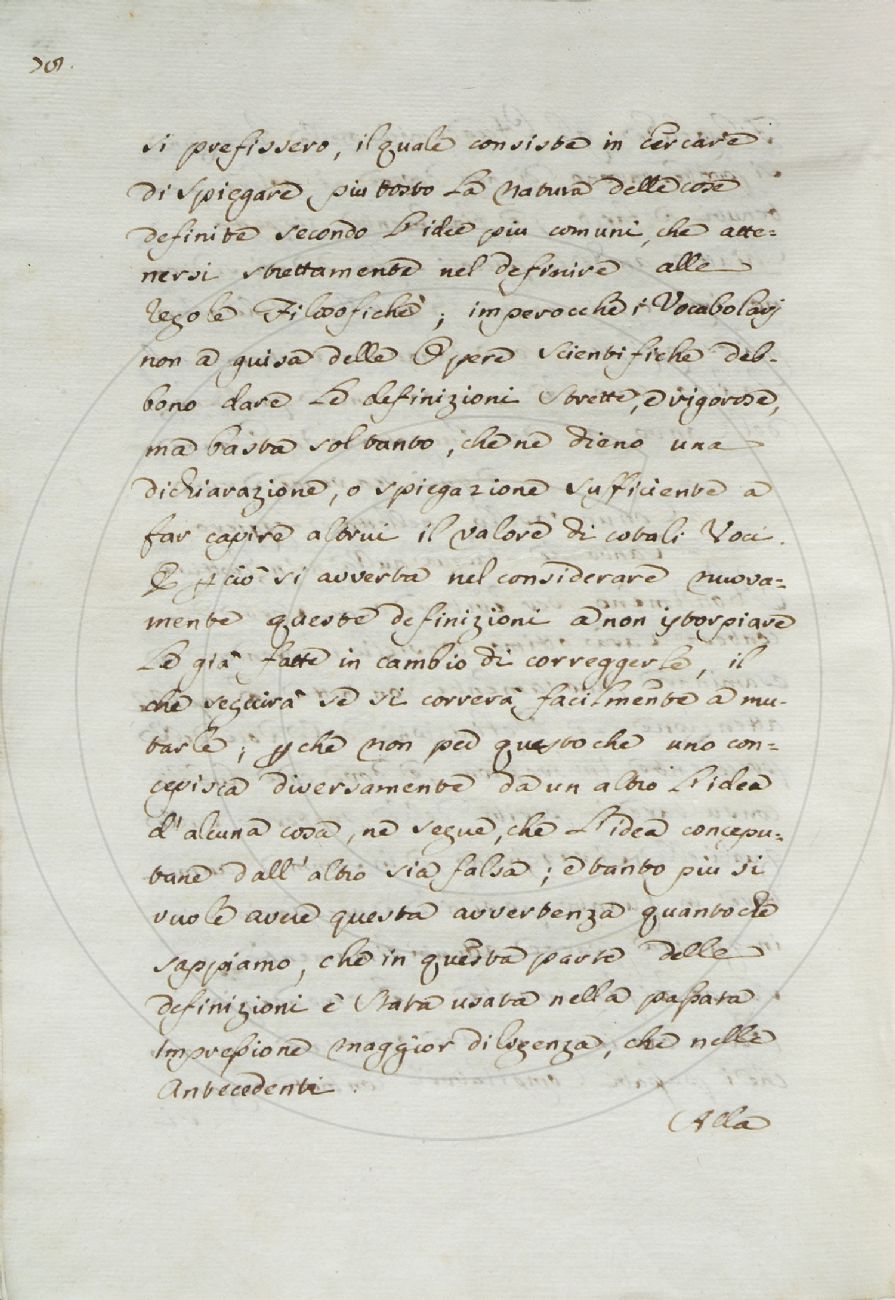 76.
si prefissero, il quale consiste in cercare
di spiegare piu tosto la natura delle cose
definite secondo l'idee piu comuni, che atte=
nersi strettamente nel definire alle
regole Filosofiche; imperocchè i Vocabolarj
non a guisa delle Opere scientifiche deb=
bono dare le definizioni strette, e rigorose,
ma basta soltanto, che ne dieno una
dichiarazione, o spiegazione sufficiente a
far capire altrui il valore di cotali Voci.
E ciò si avverta nel considerare nuova=
mente queste definizioni a non istorpiare
le già fatte in cambio di correggerle, il
che seguirà se si correrà facilmente a mu=
tarle; che non questo che uno con=
cepisca diversamente da un altro l'idea
d'alcuna cosa, ne segue, che l'idea concepu=
tane dall'altro sia falsa; e tanto più si
vuole avere questa avvertenza quantochè
sappiamo, che in questa parte delle
definizioni è stata usata nella passata
Impressione maggior diligenza, che nelle
Antecedenti.
Alla